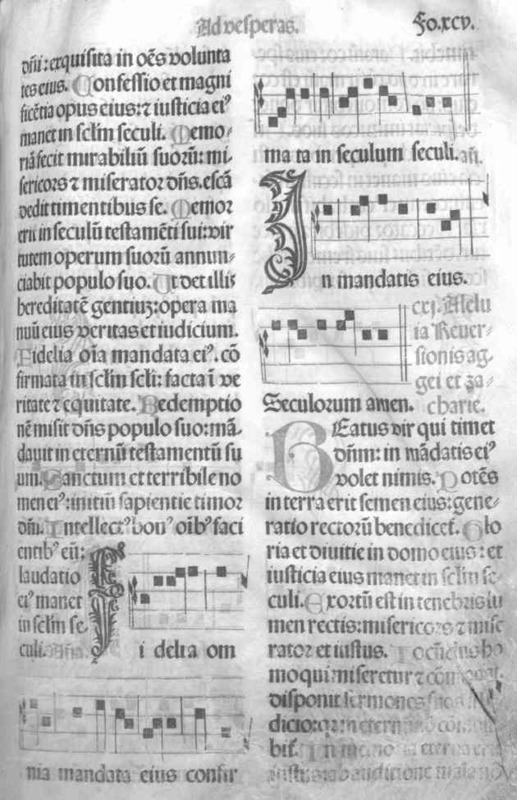 Ad vesperas.
Fo.xcv.
dñi: exquisita in oẽs volunta
tes eius. Confessio et magni
ficẽtia opus eius: ⁊ iusticia eiꝰ
manet in sc̃lm seculi. Memo⸗
riã fecit mirabiliũ suorũ: mi⸗
sericors ⁊ miserator dñs. escã
dedit timentibus se. Memor
erit in seculũ testamẽti sui: vir
tutem operum suorũ annun⸗
ciabit populo suo. Ut det illis
hereditatẽ gentiuʒ: opera ma
nuũ eius veritas et iudicium.
Fidelia oĩa mandata eiꝰ. cõ
firmata in sc̃lm sc̃li: facta ĩ ve
ritate ⁊ equitate. Redemptio
nẽ misit dñs populo suo: mã⸗
dauit in eternũ testamentũ su
um. Sanctum et terribile no
men eiꝰ: initiũ sapientie timor
dñi. Intellectꝰ bonꝰ oĩbꝰ faci
entibꝰ eũ:
laudatio
eiꝰ manet
in sc̃lm se⸗
culi. Aña.
Fi delia om
nia mandata eius confir
ma ta in seculum seculi. añ.
In mandatis eius.
cxj. Alelu
ia Reuer⸗
sionis ag⸗
gei et za⸗
Seculorum amen. charie.
BEatus vir qui timet
dñm: in mãdatis eiꝰ
volet nimis. Potẽs
in terra erit semen eius: gene⸗
ratio rectorũ benedicet̃. Glo
ria et diuitie in domo eius: et
iusticia eius manet in sc̃lm se⸗
culi. Exortũ est in tenebris lu
men rectis: misericors ⁊ mise
rator et iustus. Iocũdus ho
mo qui miseretur ⁊
disponit sermones suos
bit̃. In